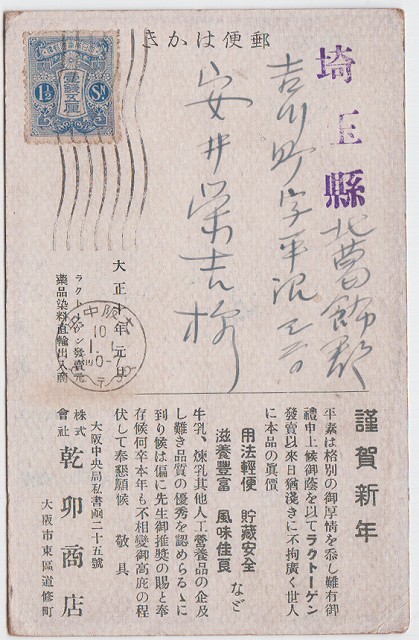 郵便はかき
埼玉縣
北葛飾郡
吉川町字平沼
安井栄吉様
壹錢五厘
1½ Sn
謹賀新年
平素は格別の御厚情を忝し難有御
禮申上候御蔭を以てラクトーゲン
發賣以來日猶淺きに不拘廣く世人
に本品の眞價
用法輕便 貯藏安全
滋養豐富 風味佳良
など
牛乳、煉乳其他人工營養品の企及
し難き品質の優秀を認めらるゝに
到り候は偏に先生御推奬の賜と奉
存候何卒本年も不相變御高庇の程
伏して奉懇願候 敬具
大正十年元旦
ラクトーゲン發賣元
藥品染料直輸出入商
大阪中央局私書凾二十五號
株式會社 乾卯商店
大阪市東區道修町